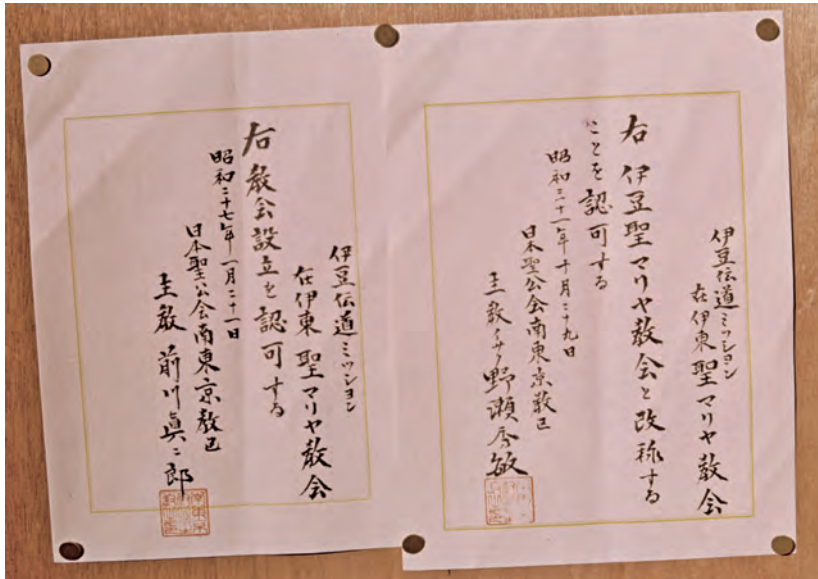 伊豆伝道ミッション
在伊東 聖マリヤ教会
右 伊豆聖マリヤ教会と改称する
ことを認可する
昭和三十一年十月二十九日
日本聖公会南東京教区
主教イサク野瀬秀敏
伊豆伝道ミッション
在伊東 聖マリヤ教会
右教会設立を認可する
昭和二十七年一月二十一日
日本聖公会南東京教区
主教 前川眞二郎